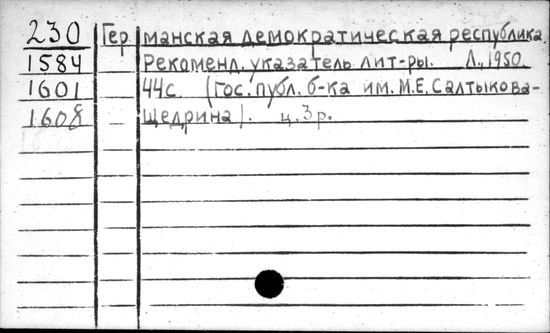 230 Германская демократическая республика.
1584 Рекоменд. указатель лит-ры. Л., 1950.
1601 44с. (Гос. публ. б-ка им. М.Е. Салтыкова-
1608 Щедрина). ц. 3 р.